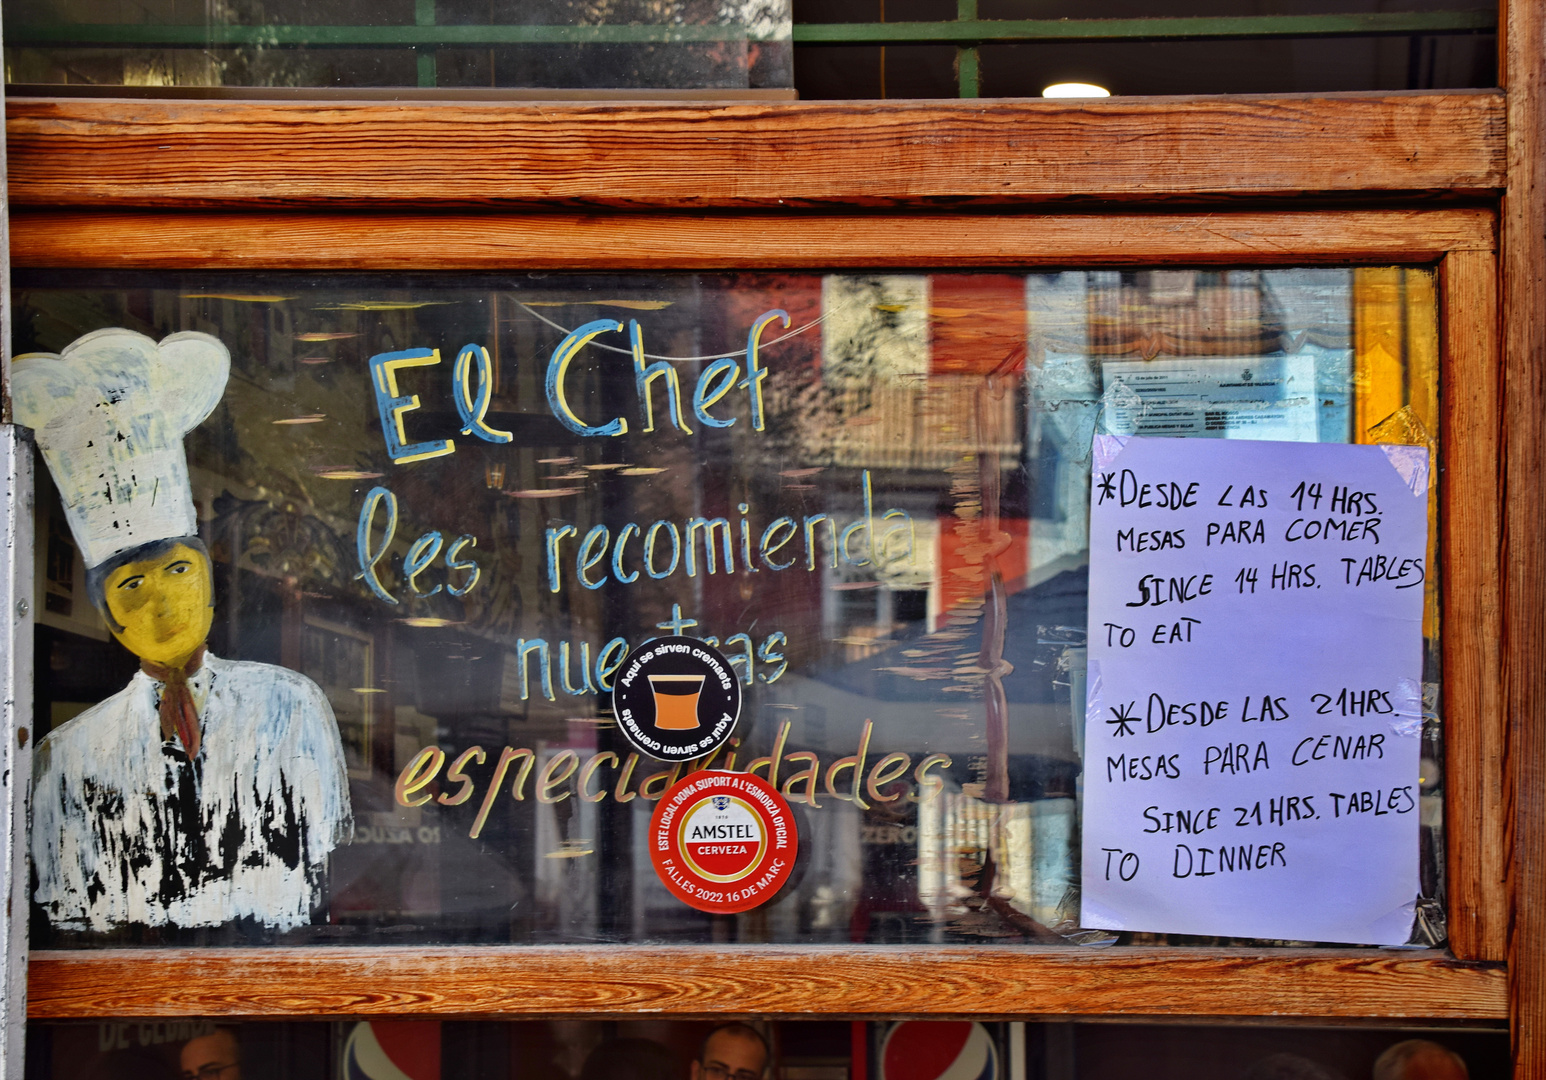 El Chef
les recomienda
nuestras
especialidades
Aquí se sirven cremaets - Aquí se sirven cremaets -
ESTE LOCAL DONA SUPORT A L'ESMORZA OFICIAL
AMSTEL
CERVEZA
FALLES 2022 16 DE MARÇ
*DESDE LAS 14 HRS.
MESAS PARA COMER
SINCE 14 HRS. TABLES
TO EAT
*DESDE LAS 21HRS.
MESAS PARA CENAR
SINCE 21HRS. TABLES
TO DINNER